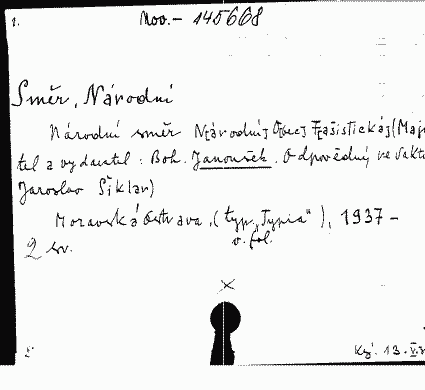 1.
Nov.- 145668
Směr, Národní
Národní směr N[árodní] O[bce] F[ašistické](Maji
tel a vydavatel: Boh. Janoušek. Odpovědný redakt
Jaroslav Šiklar)
Moravská Ostrava, (typ. "Typia"), 1937 -
v. fol.
2 sv.
13.